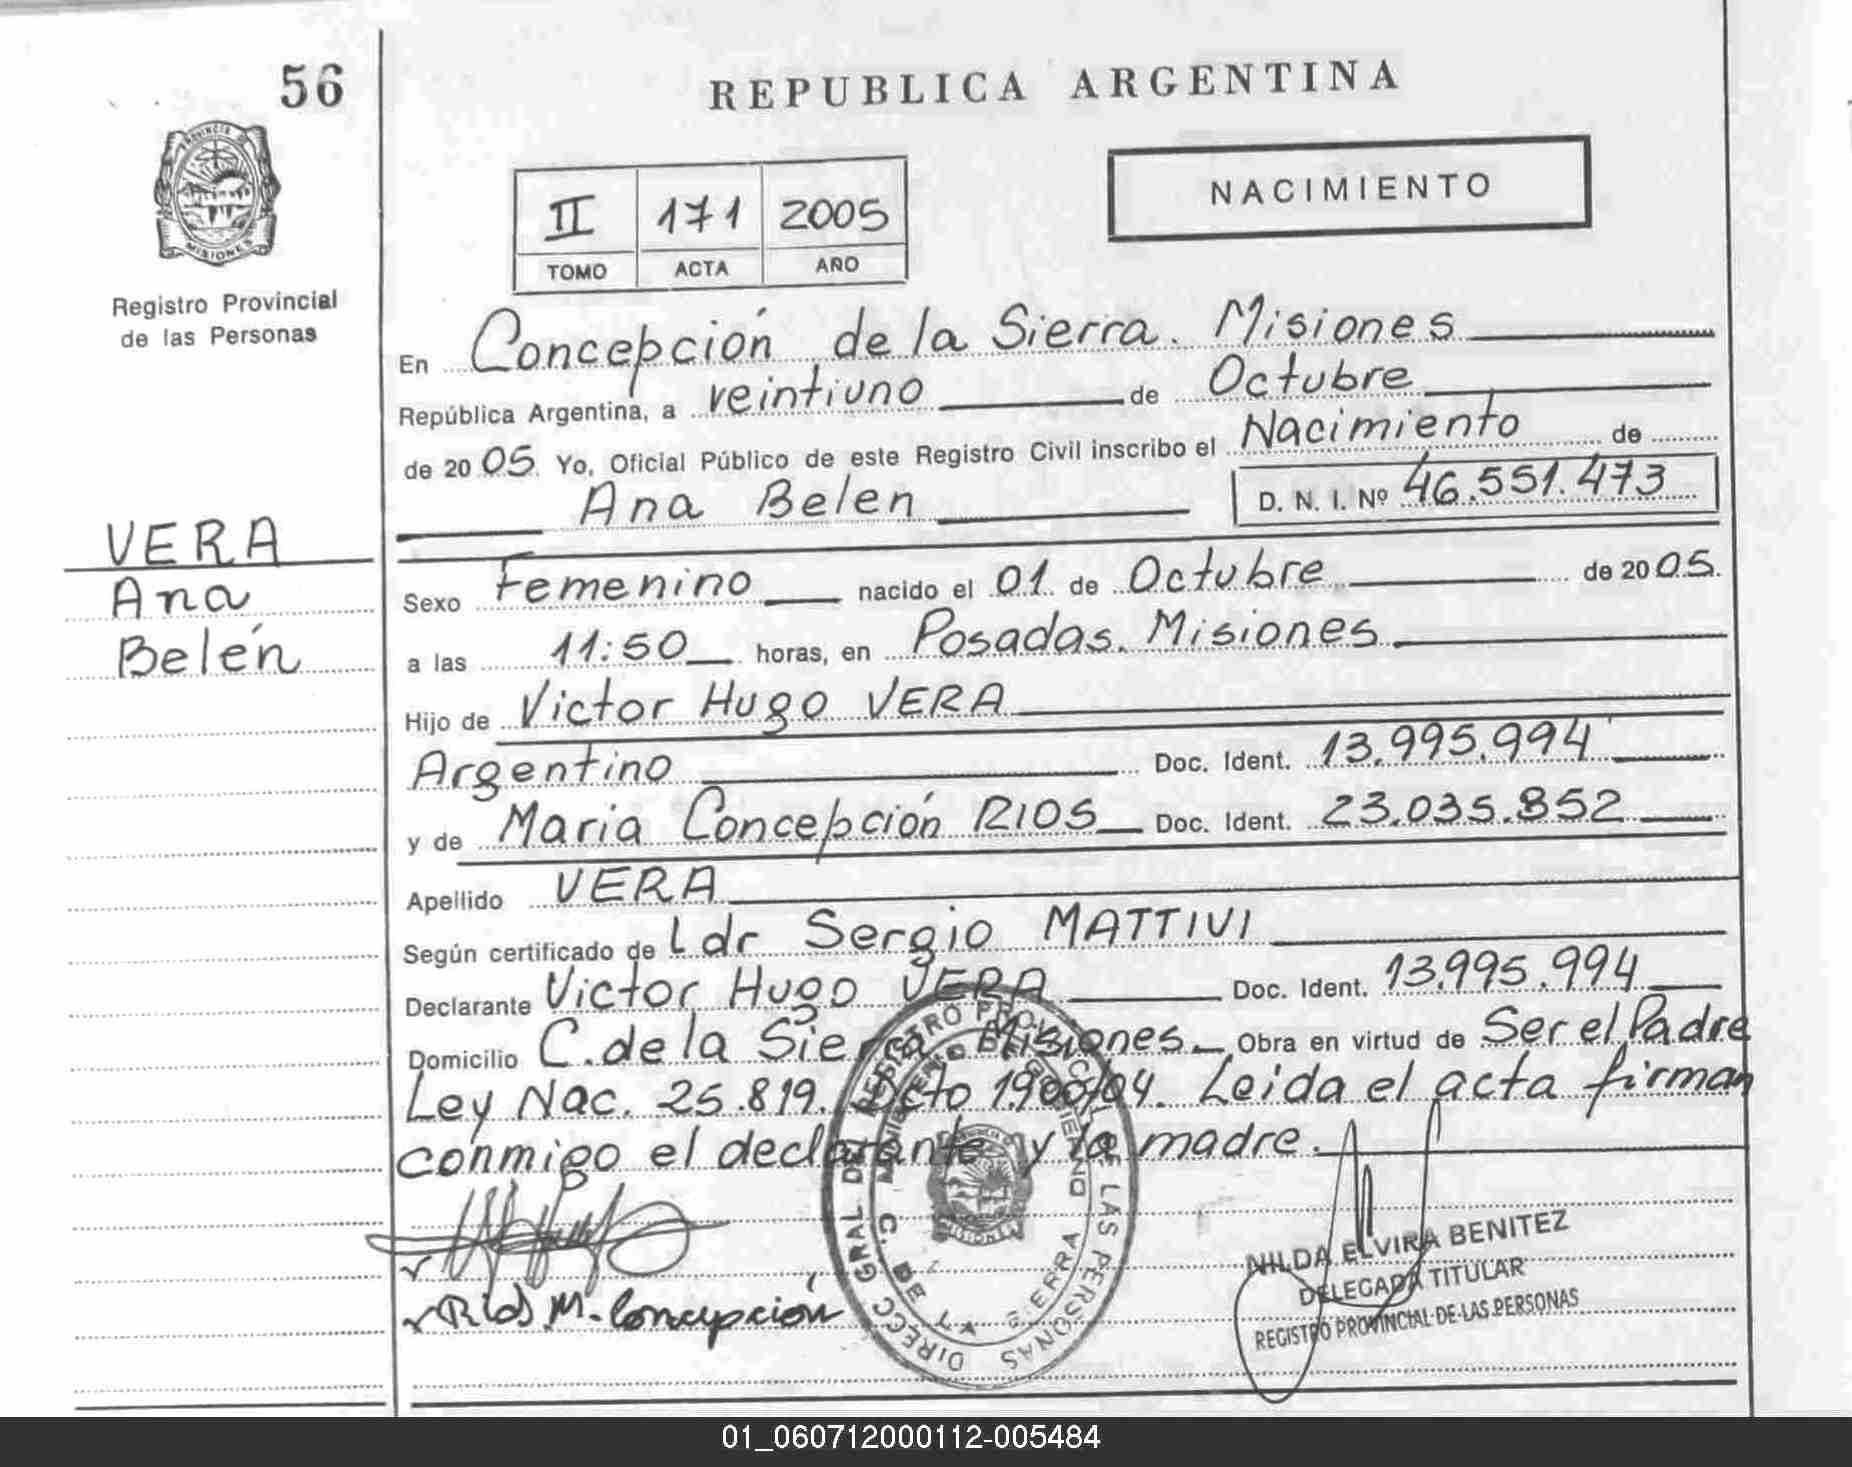 56
REPUBLICA ARGENTINA
PROVINCIA DE MISIONES
Registro Provincial
de las Personas
II 171 2005
TOMO ACTA AÑO
NACIMIENTO
En Concepción de la Sierra. Misiones
República Argentina, a veintiuno de Octubre
de 2005. Yo, Oficial Público de este Registro Civil inscribo el Nacimiento de
Ana Belen D. N. I. Nº 46.551.473
VERA
Ana
Belén
Sexo Femenino nacido el 01 de Octubre de 2005.
a las 11:50 horas, en Posadas. Misiones
Hijo de Victor Hugo VERA
Argentino Doc. Ident. 13.995.994
y de Maria Concepción RIOS Doc. Ident. 23.035.852
Apellido VERA
Según certificado de Ldr Sergio MATTIVI
Declarante Victor Hugo VERA Doc. Ident. 13.995.994
Domicilio C. de la Sierra Misiones Obra en virtud de Ser el Padre
Ley Nac. 25.819. Dcto 1900/04. Leida el acta firman
conmigo el declarante y la madre.
Rios M. Concepción
DIRECC GRAL DEL REGISTRO PROVINCIAL DE LAS PERSONAS
NILDA ELVIRA BENITEZ
DELEGADA TITULAR
REGISTRO PROVINCIAL DE LAS PERSONAS
01_060712000112-005484